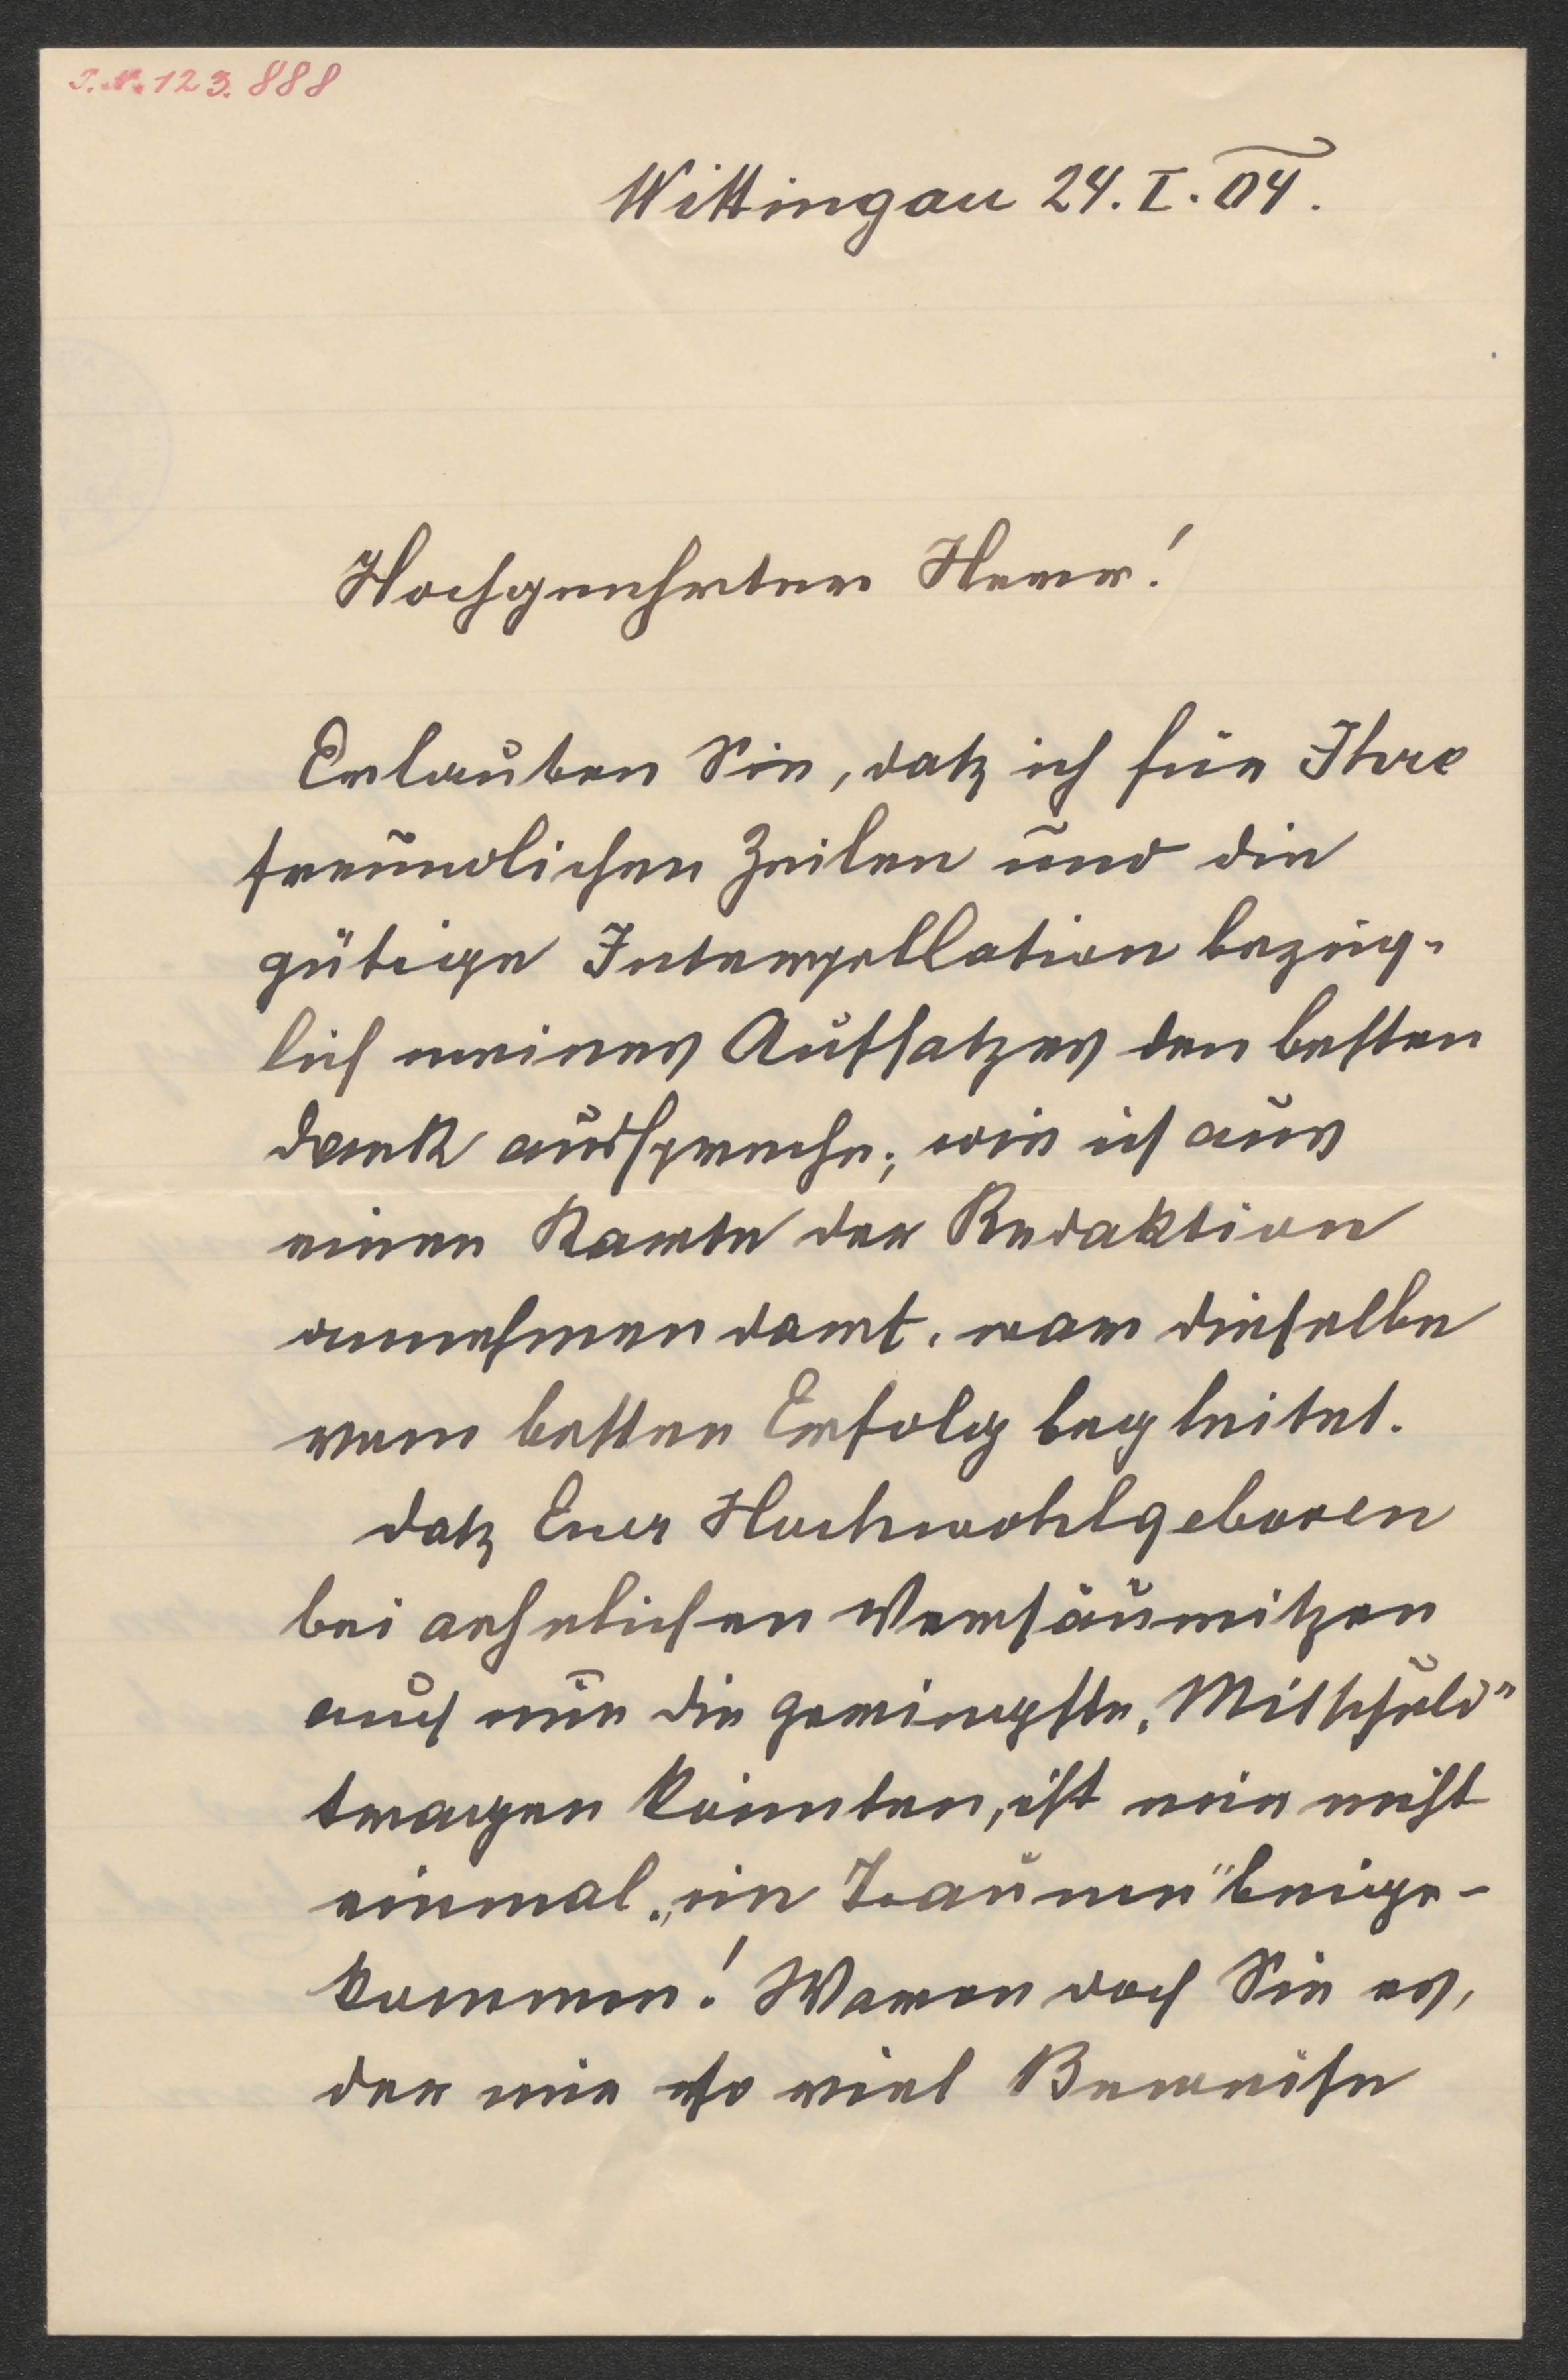 I.N. 123.888
Wittingau 24. I. 04.
Hochgeehrter Herr!
Erlauben Sie, daß ich für Ihre
freundlichen Zeilen und die
gütige Interpellation bezüg-
lich meines Aufsatzes den besten
Dank ausspreche; wie ich aus
einer Karte der Redaktion
annehmen darf, war dieselbe
vom besten Erfolg begleitet.
Daß Euer Hochwohlgeboren
bei aehnlichen Versäumißen
auch nur die geringste „Mitschuld"
tragen könnten, ist mir nicht
einmal „im Traume" beige-
kommen! Waren doch Sie es,
der mir so viel Beweise